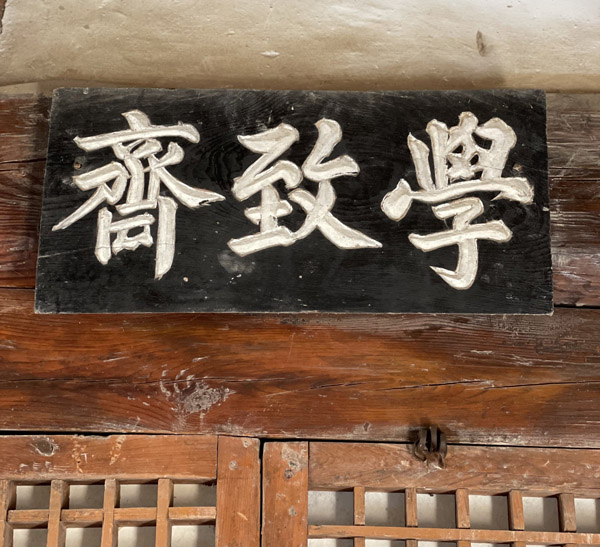 學致齋